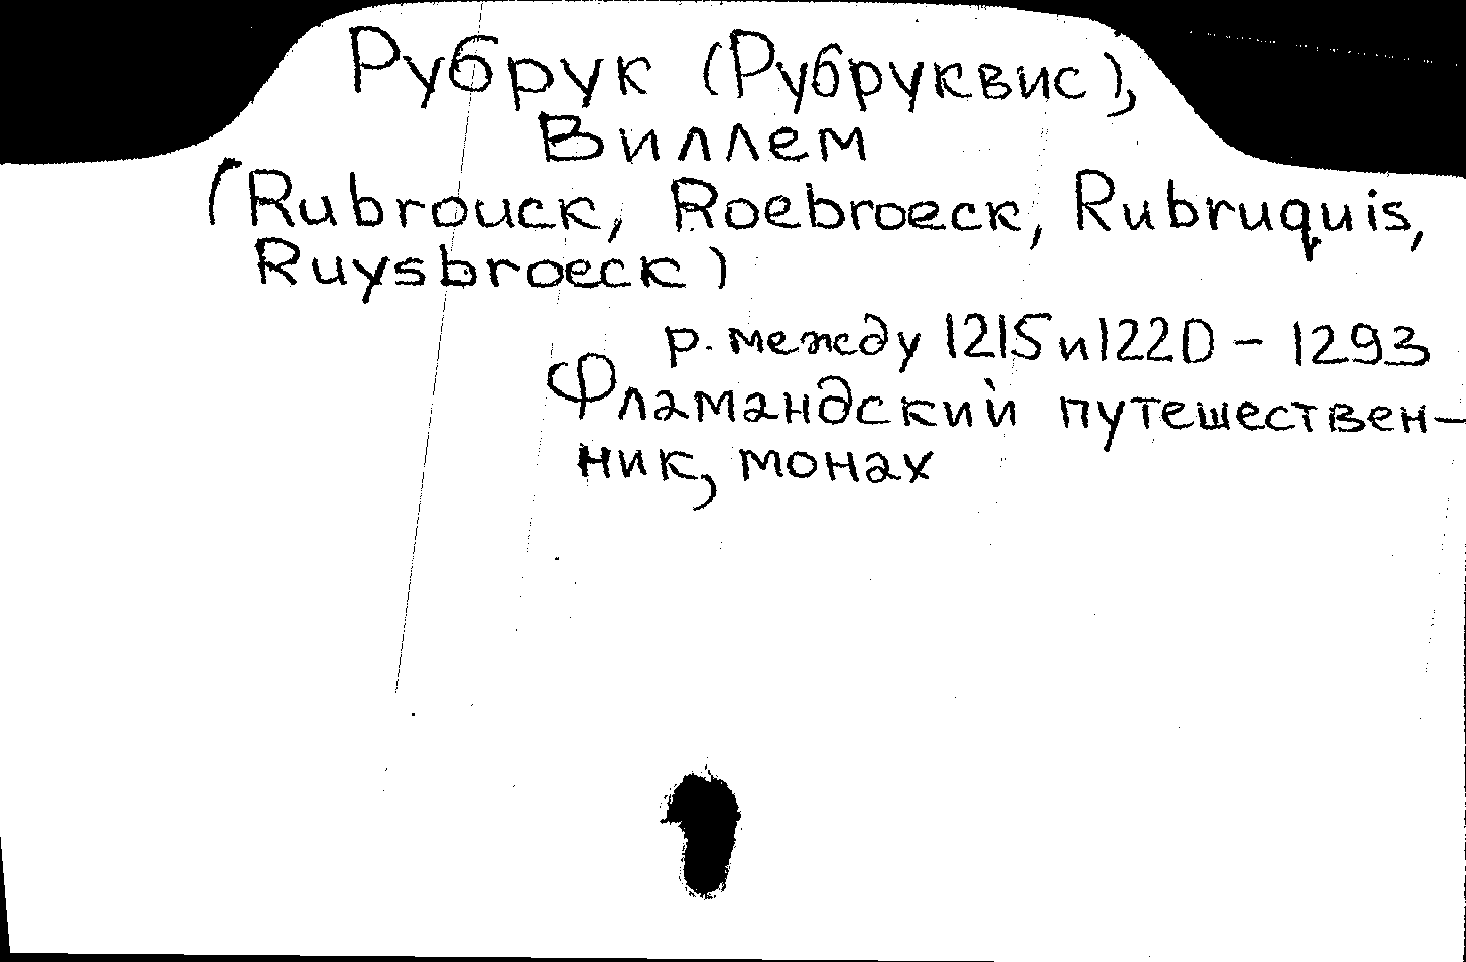 Рубрук (Рубруквис),
Виллем
(Rubrouck, Roebroeck, Rubruquis,
Ruysbroeck)
р. между 1215 и 1220 – 1293
Фламандский путешествен-
ник, монах